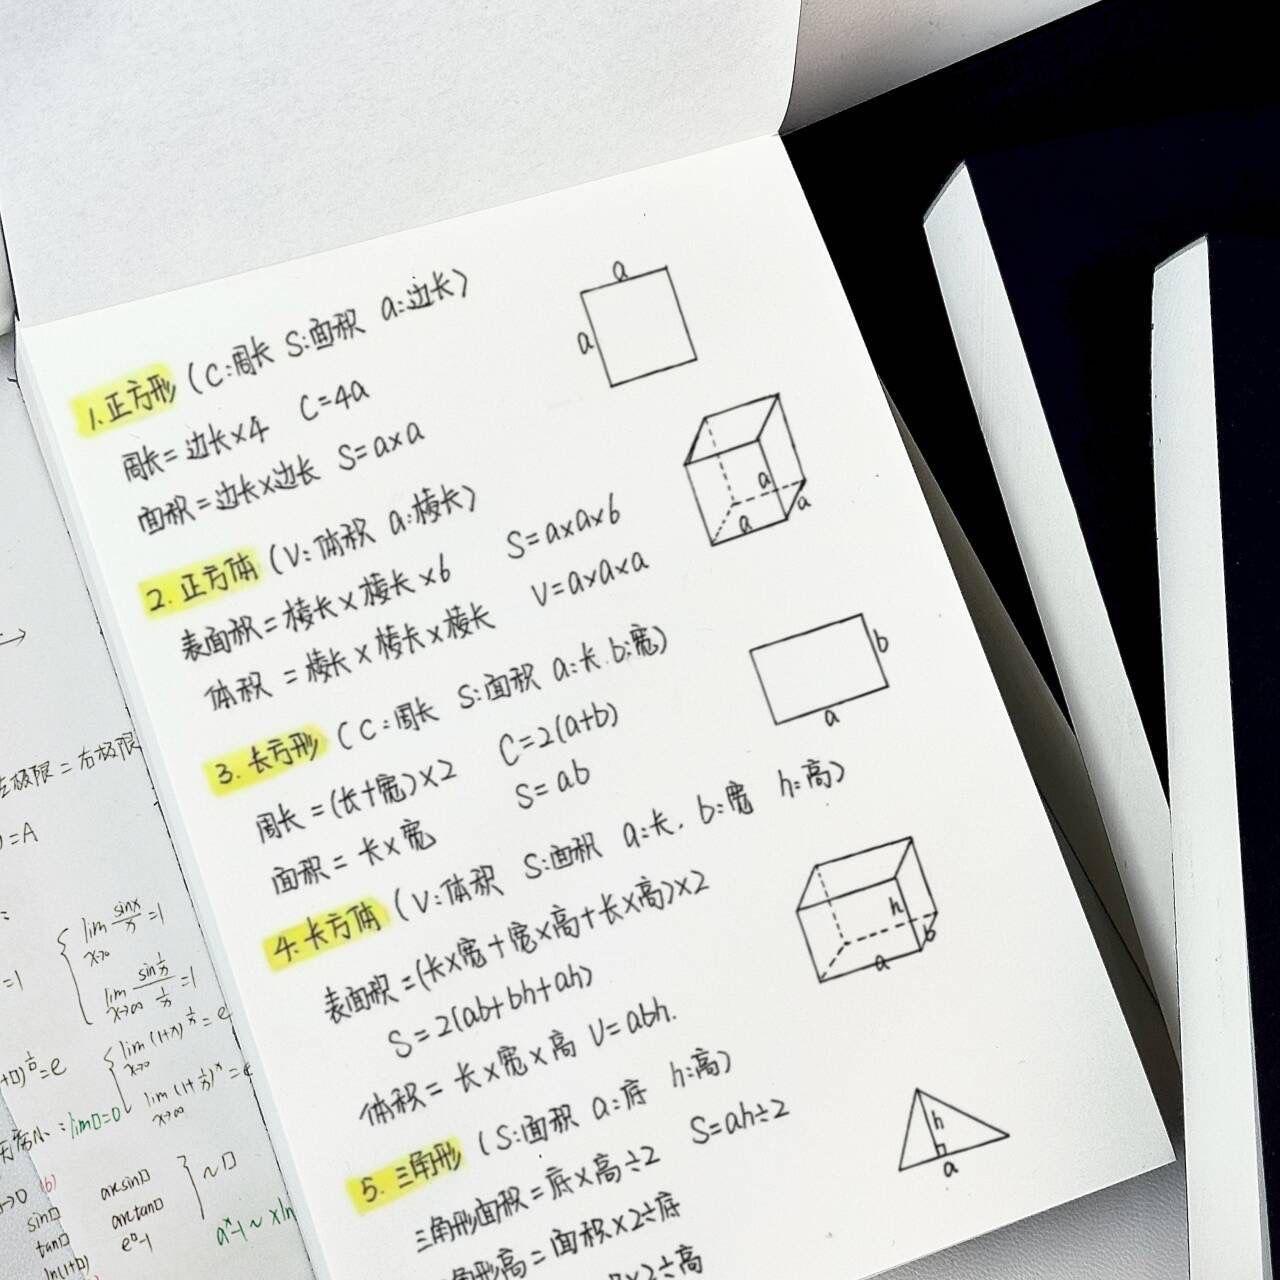 1.正方形 (C:周长 S:面积 a:边长)
周长=边长×4 C=4a
面积=边长×边长 S=a×a
a
a
2.正方体 (V:体积 a:棱长)
表面积=棱长×棱长×6 S=a×a×6
体积=棱长×棱长×棱长 V=a×a×a
a
a
a
3.长方形 (C:周长 S:面积 a:长.b:宽)
周长=(长+宽)×2 C=2(a+b)
面积=长×宽 S=ab
b
a
4.长方体 (V:体积 S:面积 a:长. b:宽 h:高)
表面积=(长×宽+宽×高+长×高)×2
S=2(ab+bh+ah)
体积=长×宽×高 V=abh.
h
b
a
5.三角形 (S:面积 a:底 h:高)
三角形面积=底×高÷2 S=ah÷2
角形高=面积×2÷底
×2÷高
h
a
极限=右极限
=A
lim sinx/x=1
x→0
=1
lim sin 1/x / 1/x=1
x→∞
lim(1+x)^1/x=e
x→0
=e
lim(1+1/x)^x=e
x→∞
lim□=0
→0
sin□ arcsin□
tan□ arctan□ ~□
ln(1+□) e^□-1
a^x-1~xln